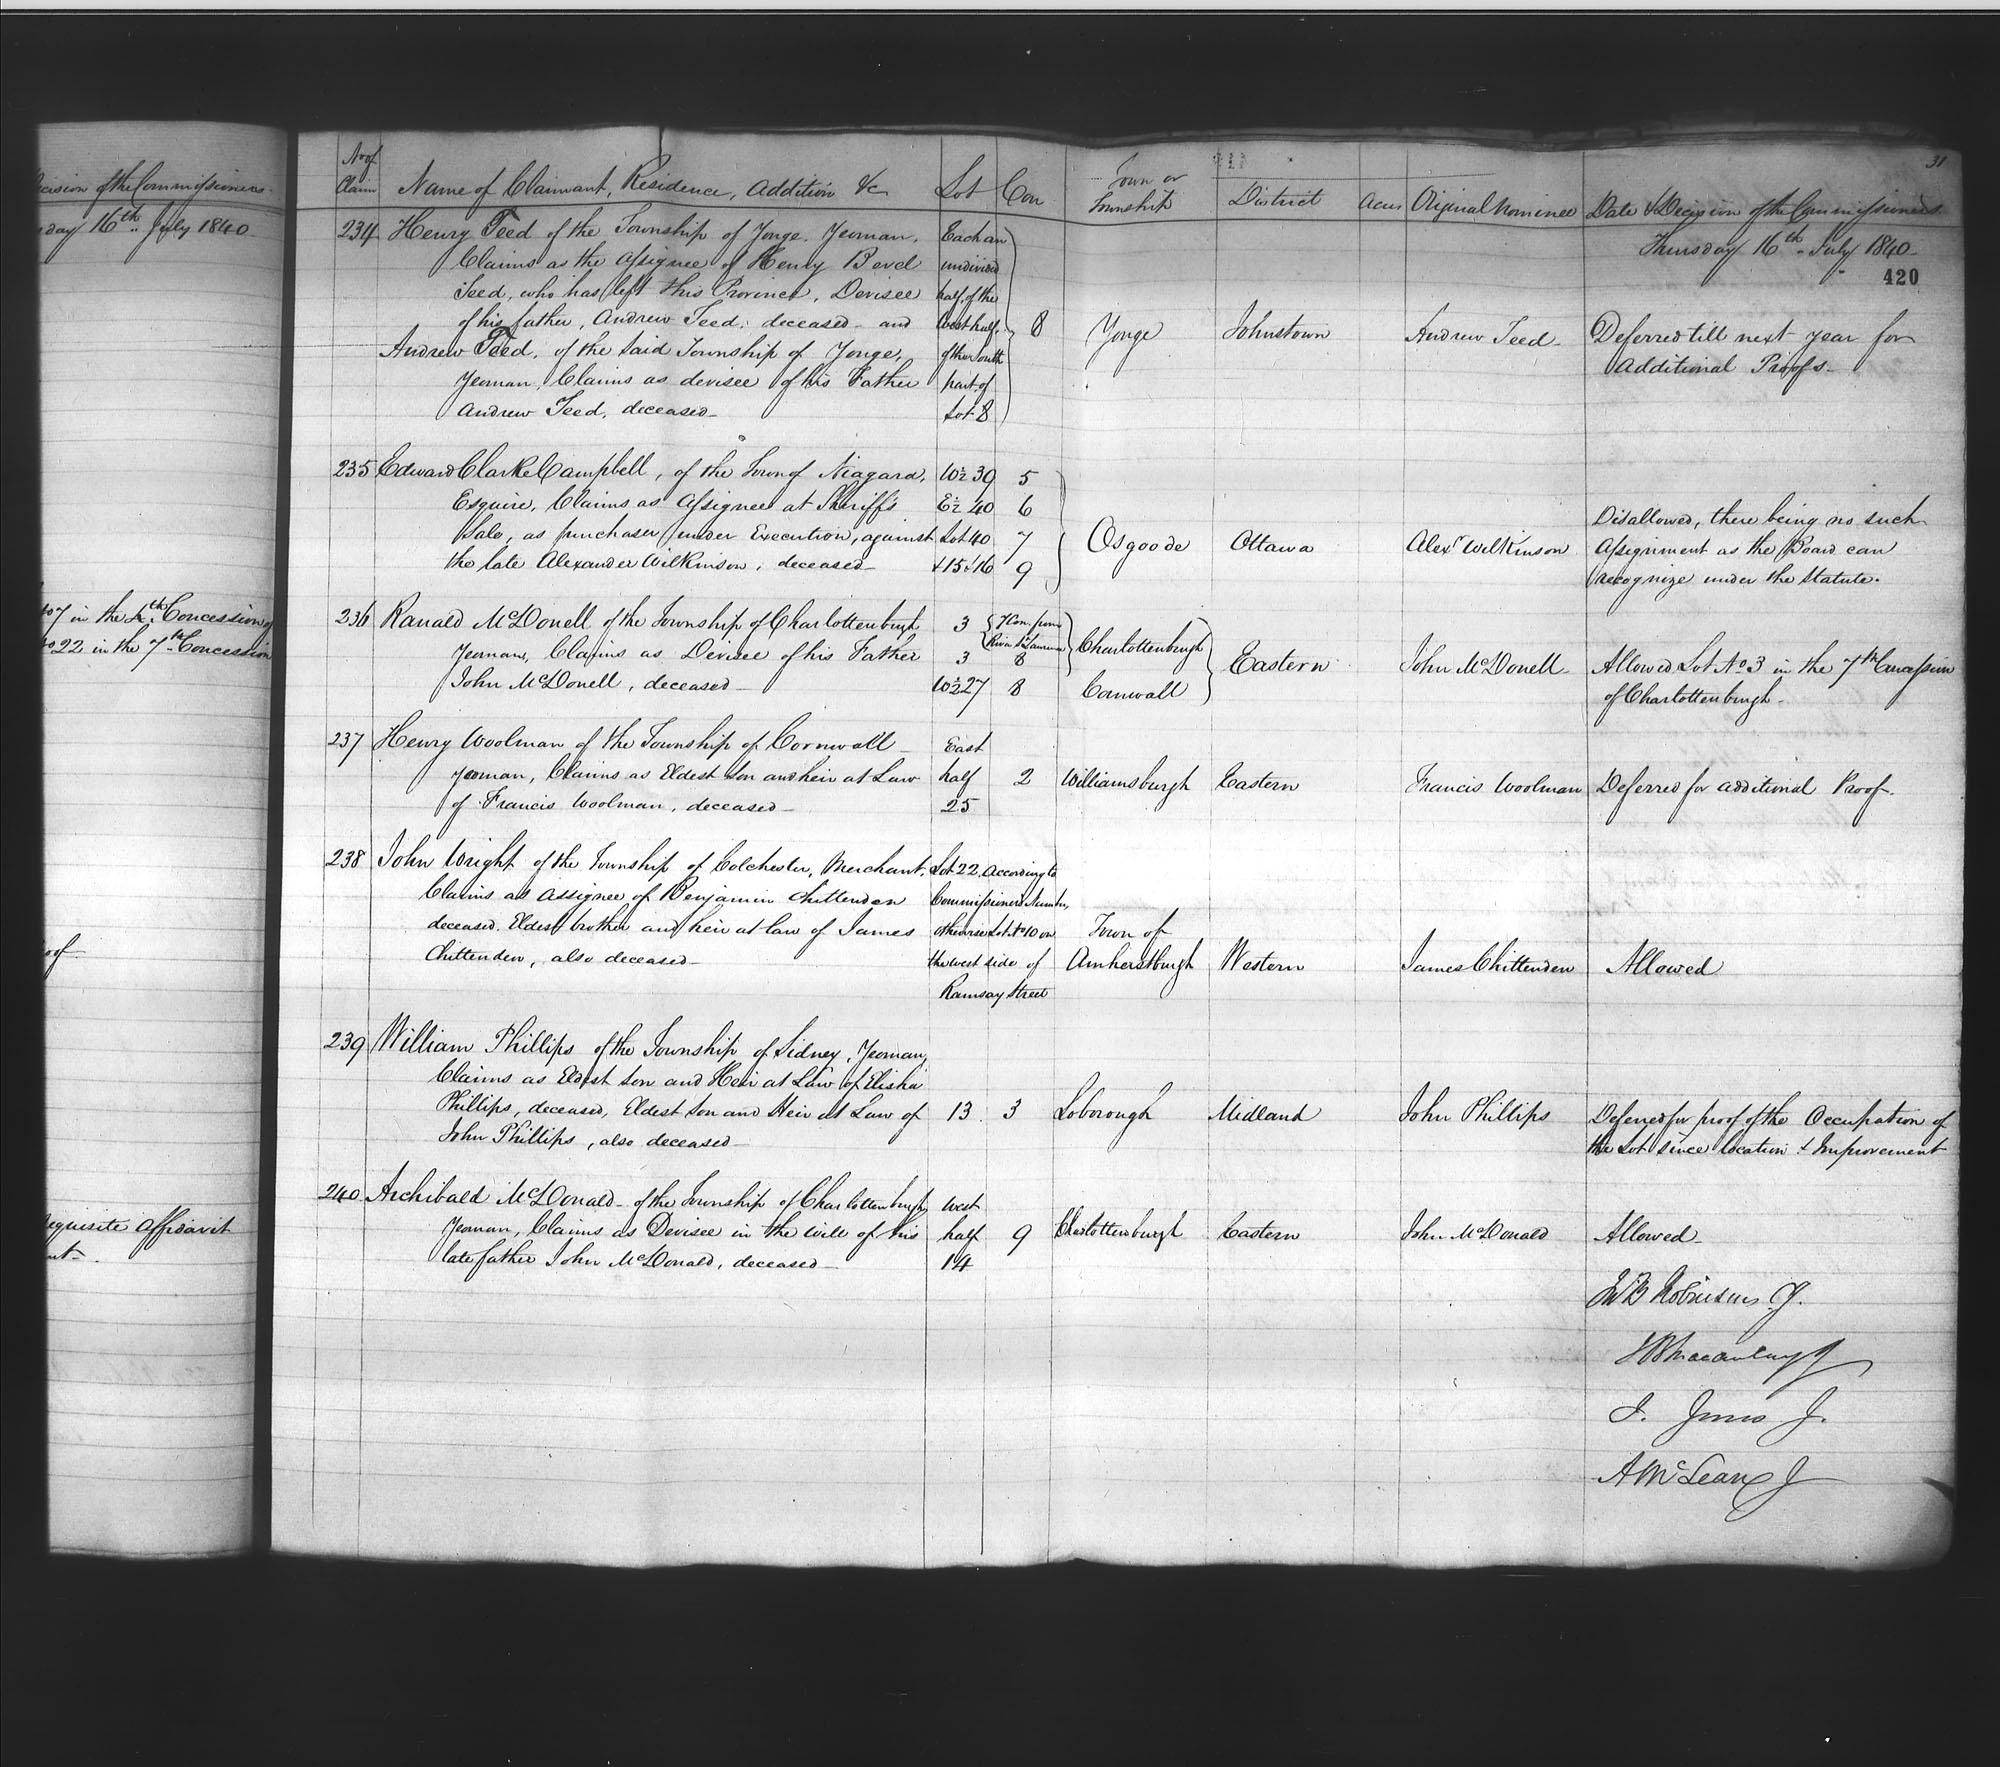 cision of the Commissioners
day 16th July 1840
407 in the 4th Concession of
No 22 in the 7th Concession
oof
equisite Affidavit
nt
31
No of Claim
Name of Claimant, Residence, Addition &c
Lot
Con
Town or Township
District
Acres
Original Nominee
Date & Decision of the Commissioners
Thursday 16th July 1840
420
234
Henry Teed of the Township of Yonge, Yeoman,
Claims as the Assignee of Henry
Teed, who has left this Province, Devisee
of his father, Andrew Teed, deceased and
Andrew Teed, of the said Township of Yonge,
Yeoman, Claims as devisee of his Father
Andrew Teed, deceased
Each an
undivided
half of the
West half
of the South
part of
Lot 8
8
Yonge
Johnstown
Andrew Teed
Deferred till next year for
Additional Proofs
235
Edward Clarke Campbell, of the Town of Niagara,
Esquire, Claims as Assignee at Sheriff's
Sale, as purchaser under Execution, against
the late Alexander Wilkinson, deceased
W½ 39
E½ 40
Lot 40
& 15 & 16
5
6
7
9
Osgoode
Ottawa
Alexr Wilkinson
Disallowed, there being no such
Assignment as the Board can
recognize under the Statute.
236
Ranald McDonell of the Township of Charlottenburgh
Yeoman, Claims as Devisee of his Father
John McDonell, deceased
3
3
W½ 27
7 Con. from
River St Lawrence
8
8
Charlottenburgh
Cornwall
Eastern
John McDonell
Allowed Lot No 3 in the 7th Concession
of Charlottenburgh
237
Henry Woolman of the Township of Cornwall
Yeoman, Claims as Eldest Son and heir at Law
of Francis Woolman, deceased
East
half
25
2
Williamsburgh
Eastern
Francis Woolman
Deferred for additional Proof.
238
John Wright of the Township of Colchester, Merchant,
Claims as Assignee of Benjamin Chittenden
deceased, Eldest brother and heir at law of James
Chittenden, also deceased
Lot 22, According to
Commissioners Number,
otherwise Lot No 10 on
the west side of
Ramsay Street
Town of
Amherstburgh
Western
James Chittenden
Allowed
239
William Phillips of the Township of Sidney, Yeoman,
Claims as Eldest Son and Heir at Law of Elisha
Phillips, deceased, Eldest Son and Heir at Law of
John Phillips, also deceased
13
3
Loborough
Midland
John Phillips
Deferred for proof of the Occupation of
the Lot since location & Improvement
240
Archibald McDonald of the Township of Charlottenburgh
Yeoman, Claims as Devisee in the will of his
late father John McDonald, deceased
West
half
14
9
Charlottenburgh
Eastern
John McDonald
Allowed
Robinson CJ.
JB Macaulay J
J. Jones J.
A McLean J